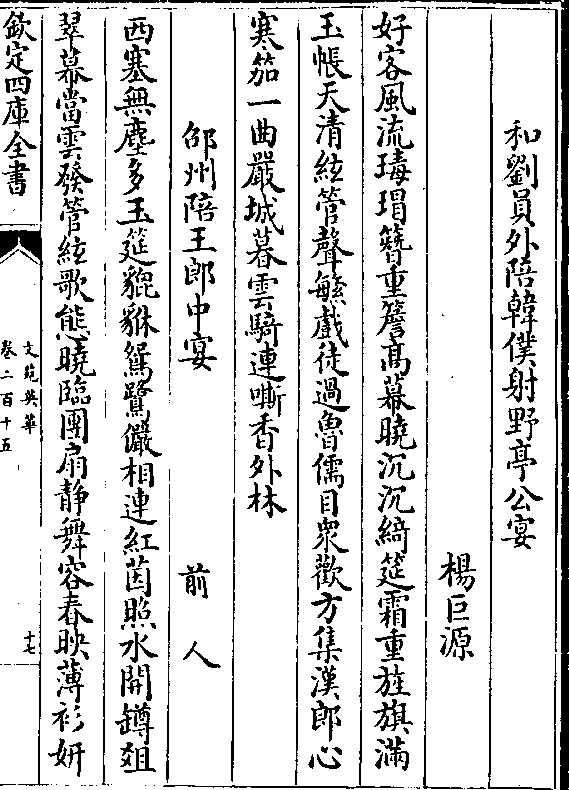 和劉員外陪韓僕射野亭公宴
楊巨源
好客風流瑇瑁簪重簷髙幕曉沉沉綺筵霜重旌旗滿
玉帳天清絃管聲繁戲徒過魯儒目衆歡方集漢郎心
寒笳一曲嚴城暮雲騎連嘶香外林
邠州陪王郎中宴
前人
西塞無塵多玉筵貔貅鴛鷺儼相連紅茵照水開罇俎
翠幕當雲發管絃歌態曉臨團扇静舞容春映薄衫妍
欽定四庫全書
文苑英華
卷二百十五
十七